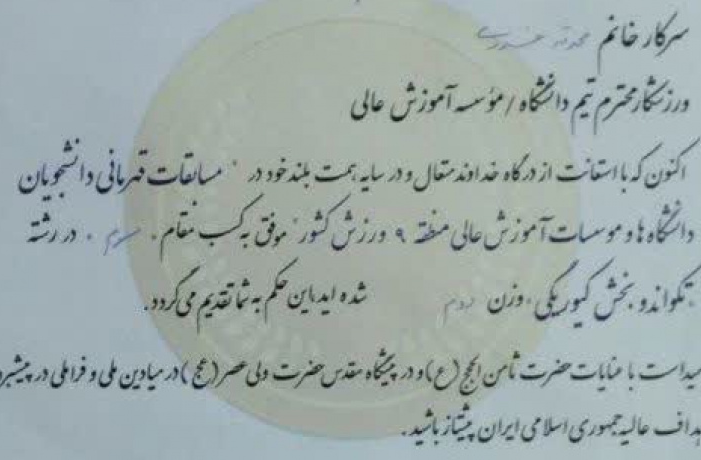 سرکار خانم محدثه
ورزشکار محترم تیم دانشگاه / مؤسسه آموزش عالی
اکنون که با استعانت از درگاه خداوند متعال و در سایه همت بلند خود در " مسابقات قهرمانی دانشجویان
دانشگاه ها و موسسات آموزش عالی منطقه ۹ ورزش کشور" موفق به کسب مقام . سوم . در رشته
. تکواندو . بخش کیوروگی . وزن دوم شده اید، این حکم به شما تقدیم می گردد.
میداست با عنایات حضرت ثامن الحجج (ع) و در پیشگاه مقدس حضرت ولی عصر (عج) در میادین ملی و فراملی در پیشبرد
هداف عالیه جمهوری اسلامی ایران پیشتاز باشید.